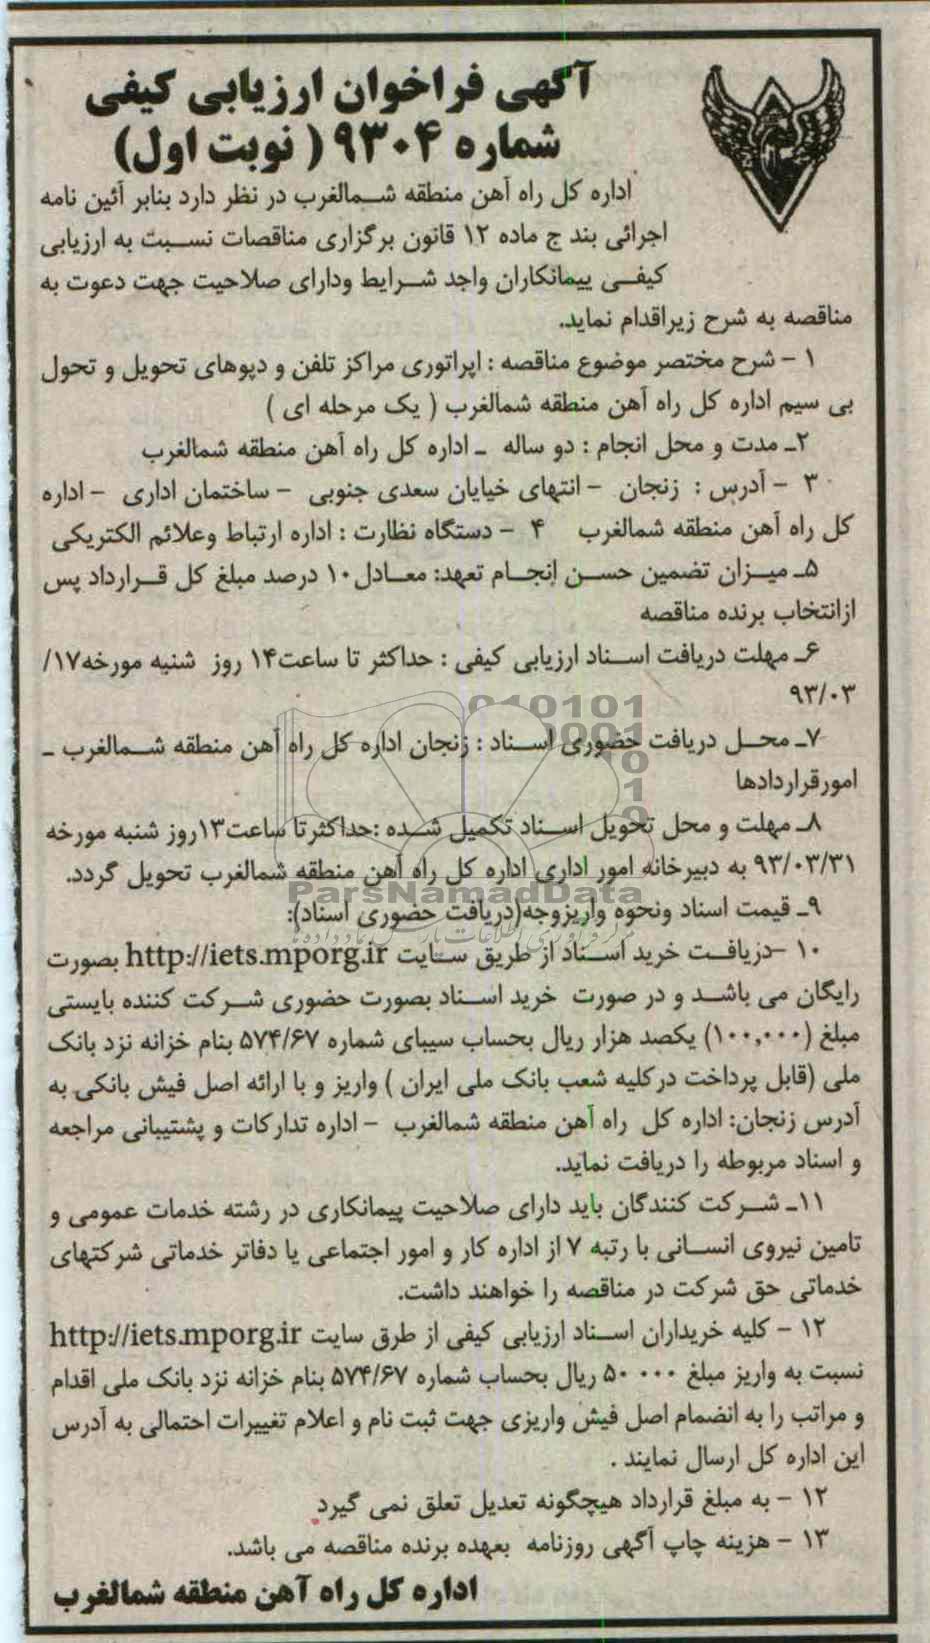 آگهی فراخوان ارزیابی کیفی
شماره ۹۳۰۴ ( نوبت اول)
اداره کل راه آهن منطقه شمالغرب در نظر دارد بنابر آئین نامه
اجرائی بند ج ماده ۱۲ قانون برگزاری مناقصات نسبت به ارزیابی
کیفی پیمانکاران واجد شرایط ودارای صلاحیت جهت دعوت به
مناقصه به شرح زیراقدام نماید.
۱ - شرح مختصر موضوع مناقصه : اپراتوری مراکز تلفن و دپوهای تحویل و تحول
بی سیم اداره کل راه آهن منطقه شمالغرب ( یک مرحله ای )
۲ـ مدت و محل انجام : دو ساله ـ اداره کل راه آهن منطقه شمالغرب
۳ - آدرس : زنجان - انتهای خیابان سعدی جنوبی - ساختمان اداری - اداره
کل راه آهن منطقه شمالغرب ۴ - دستگاه نظارت : اداره ارتباط وعلائم الکتریکی
۵ـ میزان تضمین حسن انجام تعهد: معادل۱۰ درصد مبلغ کل قرارداد پس
ازانتخاب برنده مناقصه
۶ـ مهلت دریافت اسناد ارزیابی کیفی : حداکثر تا ساعت۱۴ روز شنبه مورخه۱۷/
۹۳/۰۳
۷ـ محل دریافت حضوری اسناد : زنجان اداره کل راه آهن منطقه شمالغرب ـ
امورقراردادها
۸ـ مهلت و محل تحویل اسناد تکمیل شده :حداکثرتا ساعت۱۳روز شنبه مورخه
۹۳/۰۳/۳۱ به دبیرخانه امور اداری اداره کل راه آهن منطقه شمالغرب تحویل گردد.
ParsNamadData
۹ـ قیمت اسناد ونحوه واریزوجه(دریافت حضوری اسناد):
۱۰ -دریافت خرید اسناد از طریق سایت http://iets.mporg.ir بصورت
رایگان می باشد و در صورت خرید اسناد بصورت حضوری شرکت کننده بایستی
مبلغ (۱۰۰,۰۰۰) یکصد هزار ریال بحساب سیبای شماره ۵۷۴/۶۷ بنام خزانه نزد بانک
ملی (قابل پرداخت درکلیه شعب بانک ملی ایران ) واریز و با ارائه اصل فیش بانکی به
آدرس زنجان: اداره کل راه آهن منطقه شمالغرب - اداره تدارکات و پشتیبانی مراجعه
و اسناد مربوطه را دریافت نماید.
۱۱ـ شرکت کنندگان باید دارای صلاحیت پیمانکاری در رشته خدمات عمومی و
تامین نیروی انسانی با رتبه ۷ از اداره کار و امور اجتماعی یا دفاتر خدماتی شرکتهای
خدماتی حق شرکت در مناقصه را خواهند داشت.
۱۲ - کلیه خریداران اسناد ارزیابی کیفی از طرق سایت http://iets.mporg.ir
نسبت به واریز مبلغ ۵۰۰۰۰ ریال بحساب شماره ۵۷۴/۶۷ بنام خزانه نزد بانک ملی اقدام
و مراتب را به انضمام اصل فیش واریزی جهت ثبت نام و اعلام تغییرات احتمالی به آدرس
این اداره کل ارسال نمایند .
۱۲ - به مبلغ قرارداد هیچگونه تعدیل تعلق نمی گیرد
۱۳ - هزینه چاپ آگهی روزنامه بعهده برنده مناقصه می باشد.
اداره کل راه آهن منطقه شمالغرب